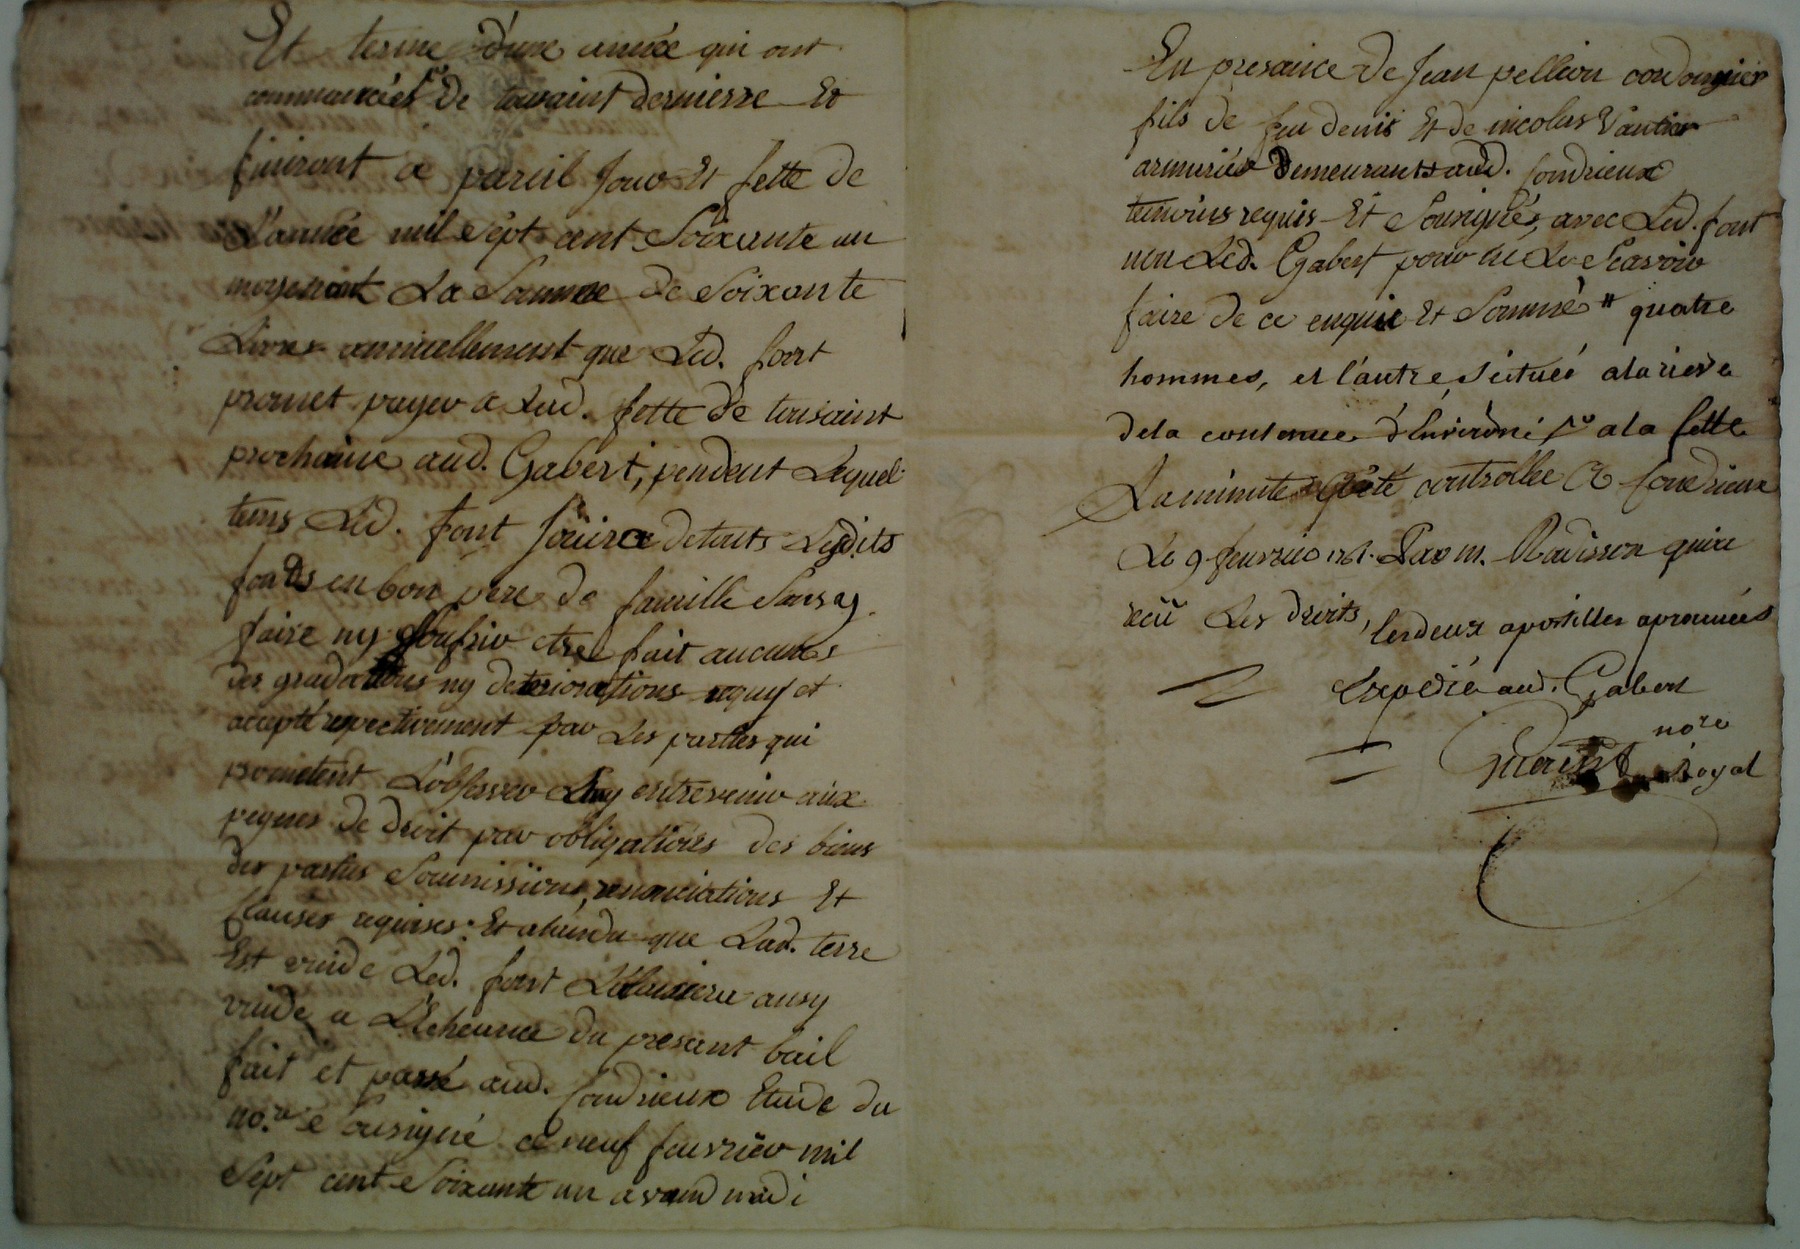 Et terme d'une année qui ont
commancées de tousaint dernierre Et
finiront a pareil Jour Et fette de
L'année mil sept cent Soixante un
moyenant La Somme de Soixante
Livres annuellement que Led. font
promet payer a Lad. fette de tousaint
prochaine aud. Gabert, pendent Lequel
tems Led. font Jouira de touts Lesdits
fonds en bon pere de famille Sans y
faire ny Soufrir etre fait aucunes
des gradations ny deteriorations requy et
accepté respectivement par Les parties qui
prometent L'observer sans y contrevenir aux
peynes de droit par obligations des biens
des parties Soumissions, renonciations Et
clauses requises. Et atandu que Lad. terre
Est vuide Led. font Laissera ausy
vuide a L'Echeance du presant bail
fait et passé aud. Condrieux Etude du
no.re Sousigné ce neuf feuvrier mil
Sept cent Soixante un avand midi
En presance de Jean pellion cordonnier
fils de feu denis Et de nicolas Vantier
armurier Demeurants aud. Condrieux
temoins requis Et Sousignés, avec Led. font
non Led. Gabert pour ne Le Scavoir
faire de ce enquis Et Sommé # quatre
hommes, et l'autre scitués a la riere
de la contenue d'Environ a la fette
La minute a Eté controllée a Condrieux
Le 9 feuvrier 1761. Par m. Radisson qui a
reçu Les droits, les deux apostilles aprouvées
Expedié aud. Gabert
no.re
Royal